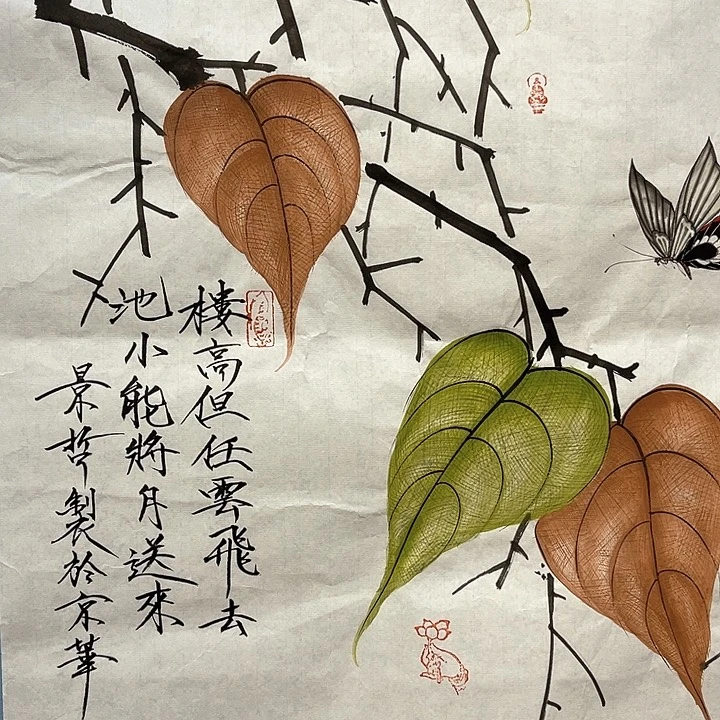 樓高但任雲飛去
池小能將月送來
景哲製於京華